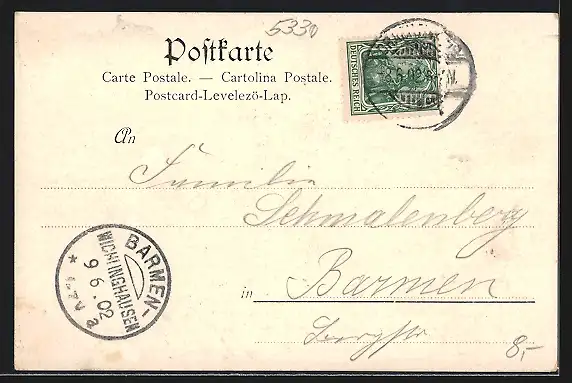 5330
Postkarte
Carte Postale. — Cartolina Postale.
Postcard-Levelezö-Lap.
DEUTSCHES REICH
8.6.02.8-9N.
An
Familie
Schmalenberg
in Barmen
BARMEN-
WICHLINGHAUSEN
9 6. 02
a
8,-